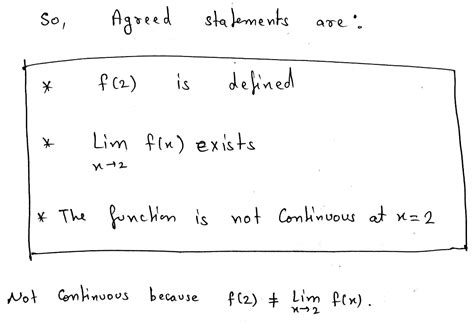 So, Agreed statements are :
* f(2) is defined
* Lim f(x) exists
x→2
* The function is not Continuous at x=2
Not Continuous because f(2) ≠ Lim f(x).
x→2